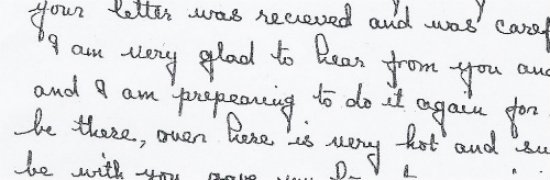 your letter was recieved and was caref
I am very glad to hear from you and
and I am prepearing to do it again for
be there, over here is very hot and su
be with you